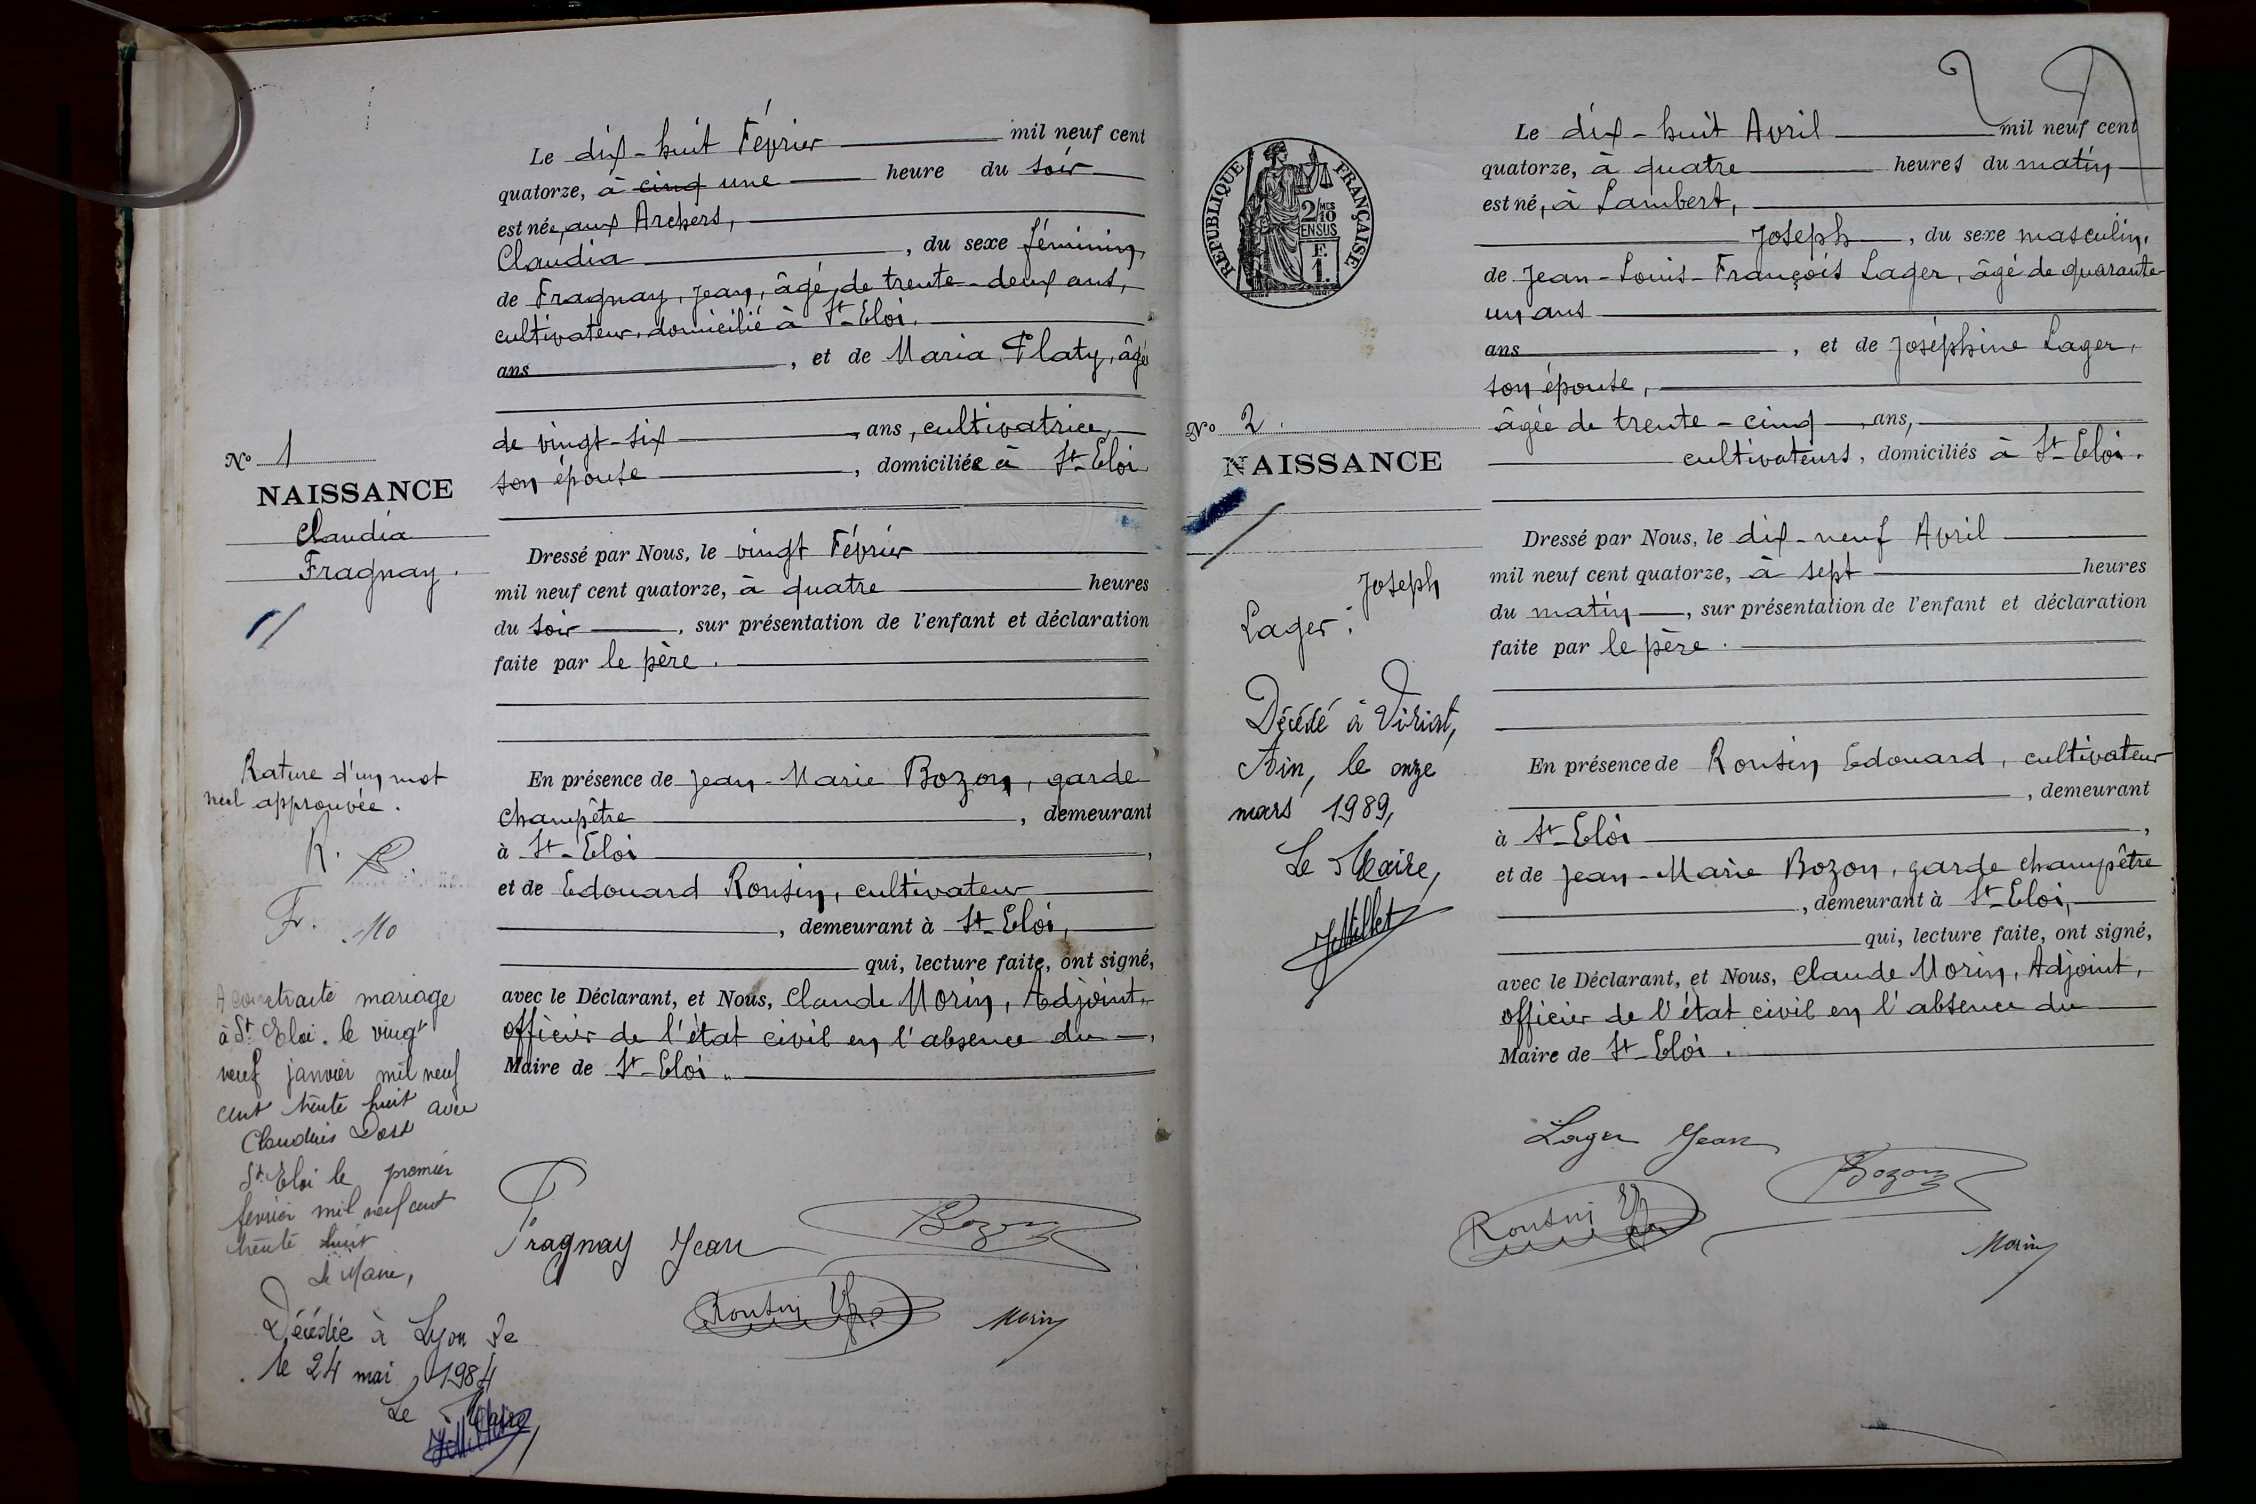 Le dix-huit Février mil neuf cent
quatorze, à cinq une heure du soir
est née, aux Archers,
Claudia, du sexe féminin,
de Fragnay, Jean, âgé de trente-deux ans,
cultivateur, domicilié à St-Eloi.
ans, et de Maria Platy, âgée
de vingt-six, ans, cultivatrice,
son épouse, domiciliée à St-Eloi
Dressé par Nous, le vingt Février
mil neuf cent quatorze, à quatre heures
du soir, sur présentation de l'enfant et déclaration
faite par le père.
En présence de Jean-Marie Bozon, garde
champêtre, demeurant
à St-Eloi,
et de Edouard Ronsin, cultivateur
, demeurant à St-Eloi,
qui, lecture faite, ont signé,
avec le Déclarant, et Nous, Claude Morin, Adjoint,
officier de l'état civil en l'absence du
Maire de St-Eloi.
Fragnay Jean
Bozon
Ronsin
Morin
No 1
NAISSANCE
Claudia
Fragnay.
Rature d'un mot
nul approuvée.
R. B.
F. Mo
A contracté mariage
à St Eloi. le vingt
neuf janvier mil neuf
cent trente huit avec
Claudius
St Eloi le premier
février mil neuf cent
trente huit
Le Maire,
Décédée à Lyon 3e
le 24 mai 1984
Le Maire
REPUBLIQUE FRANÇAISE
2/10 MES
EN SUS
F.
1.
No 2.
NAISSANCE
Joseph
Lager.
Décédé à Viriat,
Ain, le onze
mars 1989,
Le Maire,
JMillet
2
Le dix-huit Avril mil neuf cent
quatorze, à quatre heures du matin
est né, à Lambert,
Joseph, du sexe masculin,
de Jean-Louis-François Lager, âgé de quarante
un ans
ans, et de Joséphine Lager,
son épouse,
âgée de trente-cinq, ans,
cultivateurs, domiciliés à St-Eloi.
Dressé par Nous, le dix-neuf Avril
mil neuf cent quatorze, à sept heures
du matin, sur présentation de l'enfant et déclaration
faite par le père.
En présence de Ronsin Edouard, cultivateur
, demeurant
à St-Eloi,
et de Jean-Marie Bozon, garde champêtre
, demeurant à St-Eloi,
qui, lecture faite, ont signé,
avec le Déclarant, et Nous, Claude Morin, Adjoint,
officier de l'état civil en l'absence du
Maire de St-Eloi.
Lager Jean
Bozon
Ronsin
Morin